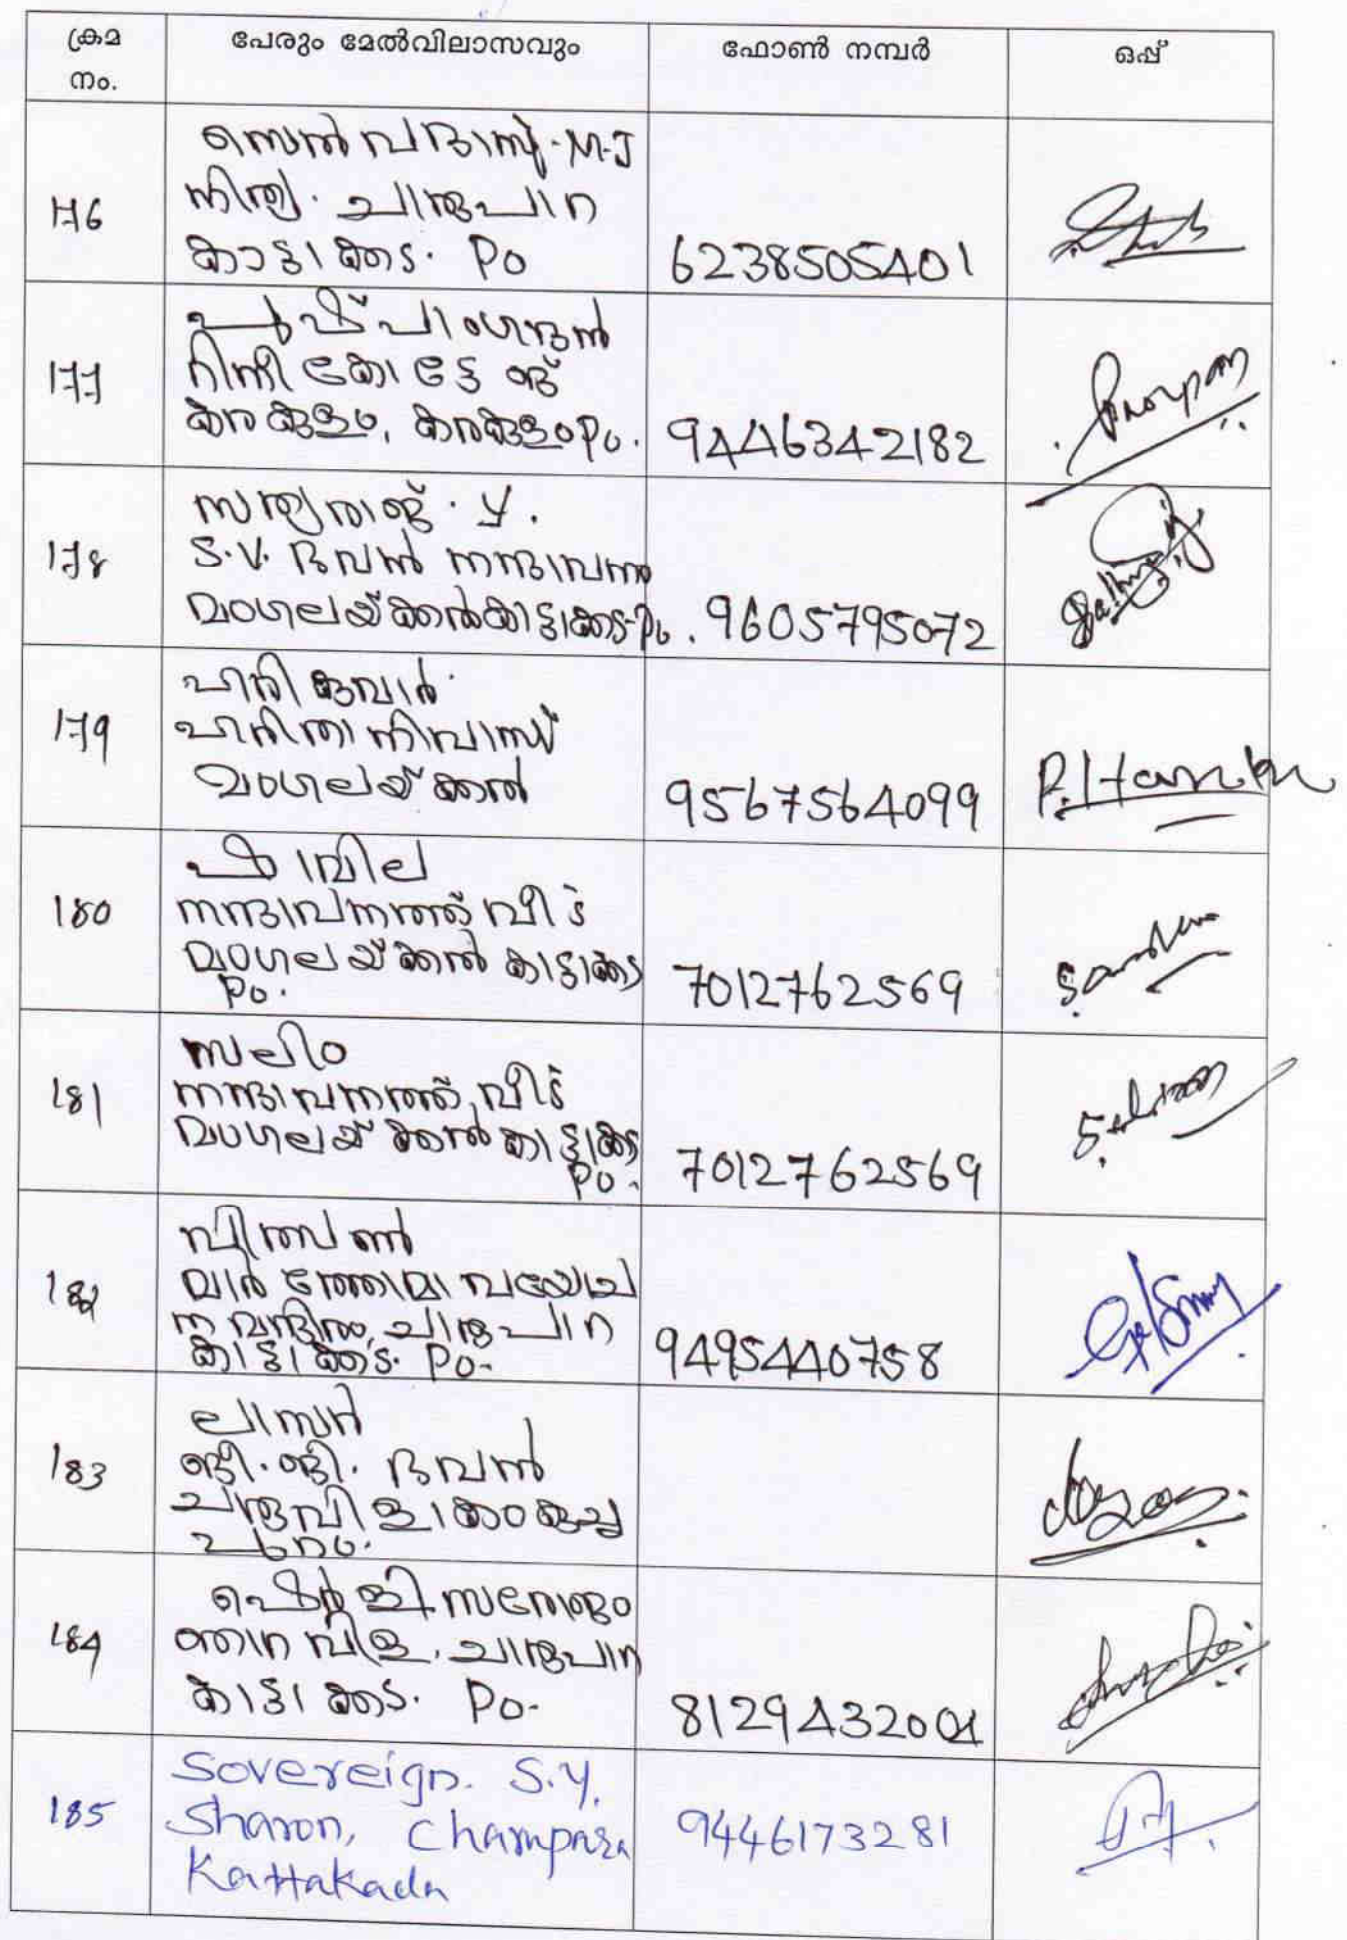 ക്രമ നം. പേരും മേൽവിലാസവും ഫോൺ നമ്പർ ഒപ്പ്
176 സെൽവദാസ്. M.J
നിത്യ. ചാരുപാറ
കാട്ടാക്കട. Po 6238505401
177 പുഷ്പാംഗദൻ
റിനി കോട്ടേജ്
കരകുളം, കരകുളം Po. 9446342182
178 സത്യരാജ്. Y.
S.V. ഭവൻ നന്ദാവനം
മംഗലയ്ക്കൽ കാട്ടാക്കട Po. 9605795072
179 ഹരികുമാർ
ഹരിതാ നിവാസ്
മംഗലയ്ക്കൽ 9567564099 P. Hari
180
നന്ദാവനത്ത് വീട്
മംഗലയ്ക്കൽ കാട്ടാക്കട
Po. 7012762569
181 സലിം
നന്ദാവനത്ത് വീട്
മംഗലയ്ക്കൽ കാട്ടാക്കട
Po. 7012762569
182 വിത്സൺ
മാർത്തോമാ വയോജ
ന മന്ദിരം, ചാരുപാറ
കാട്ടാക്കട. Po. 9495440758
183 ലാസർ
ജി.ജി. ഭവൻ
ചരുവിളാകം
പുറം.
184 ഷെർളി സന്തോഷം
വിള, ചാരുപാറ
കാട്ടാക്കട. Po. 8129432001
185 Sovereign. S.Y.
Sharon, Champara
Kattakada 9446173281